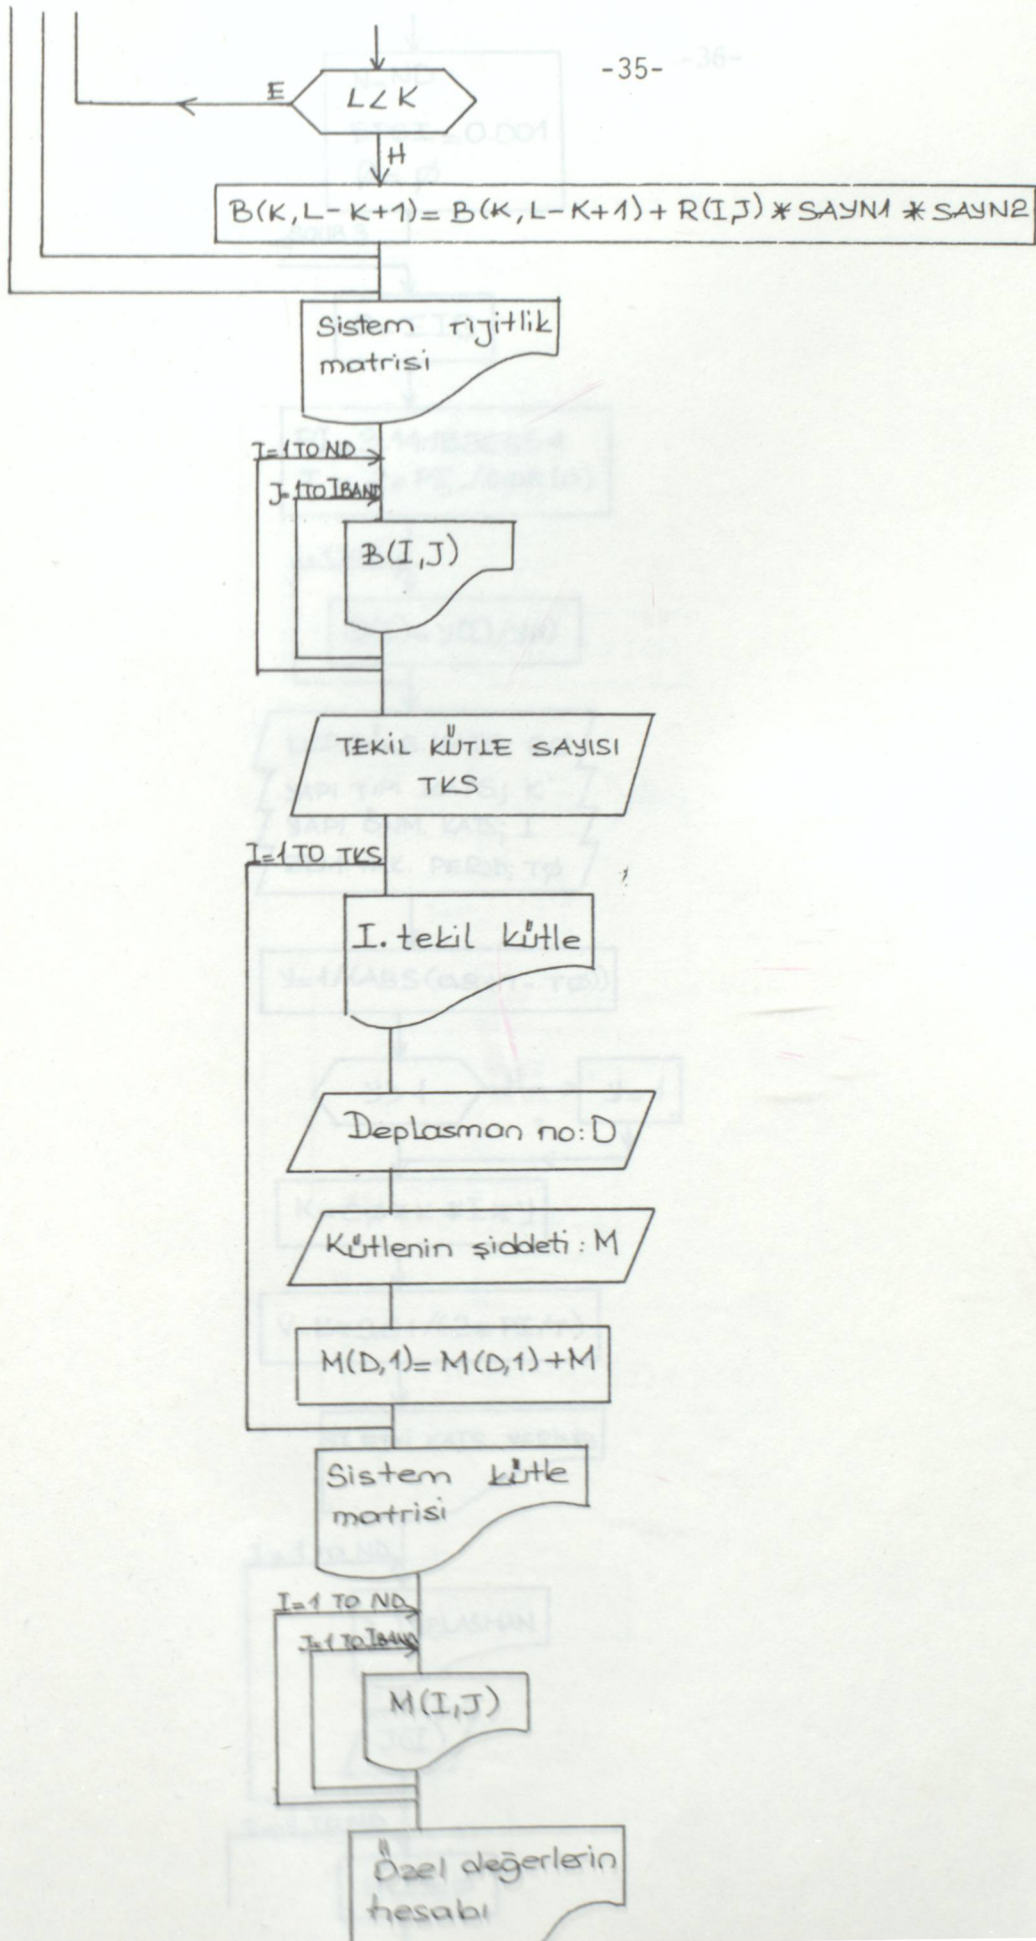 -35-
L < K
E
H
B(K, L-K+1) = B(K, L-K+1) + R(I,J) * SAYN1 * SAYN2
Sistem rijitlik
matrisi
I=1 TO ND
J=1 TO IBAND
B(I,J)
TEKİL KÜTLE SAYISI
TKS
I=1 TO TKS
I. tekil kütle
Deplasman no: D
Kütlenin şiddeti: M
M(D,1) = M(D,1) + M
Sistem kütle
matrisi
I=1 TO ND
J=1 TO IBAND
M(I,J)
Özel değerlerin
hesabı